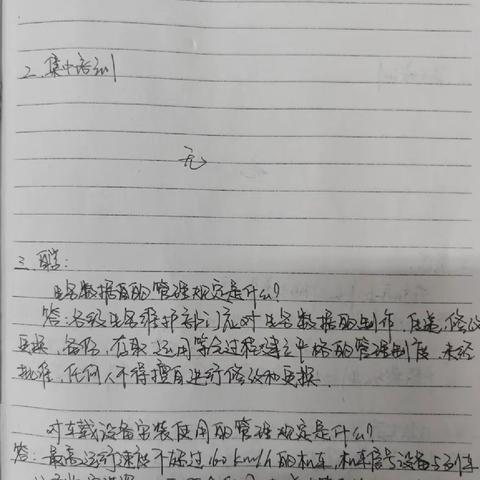 二、集中培训
无
三、自学:
电务数据的管理规定是什么?
答:各级电务维护部门应对电务数据的制作、传递、修改
更换、备份、存取、运用等全过程建立严格的管理制度,未经
批准,任何人不得擅自进行修改和更换.
对车载设备安装使用的管理规定是什么?
答:最高运行速度不超过160km/h的机车,机车信号设备与列车